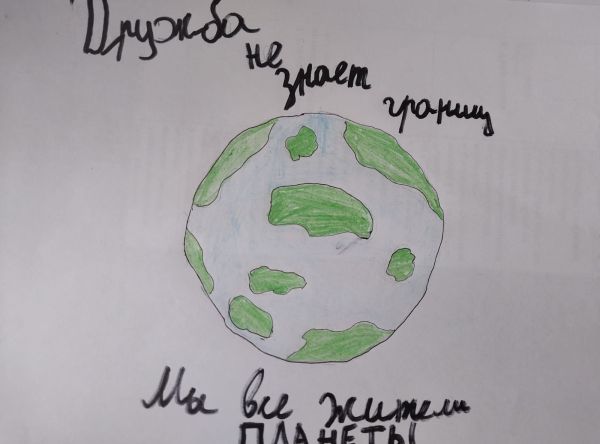 Дружба
не
знает
границ
Мы все жители
ПЛАНЕТЫ